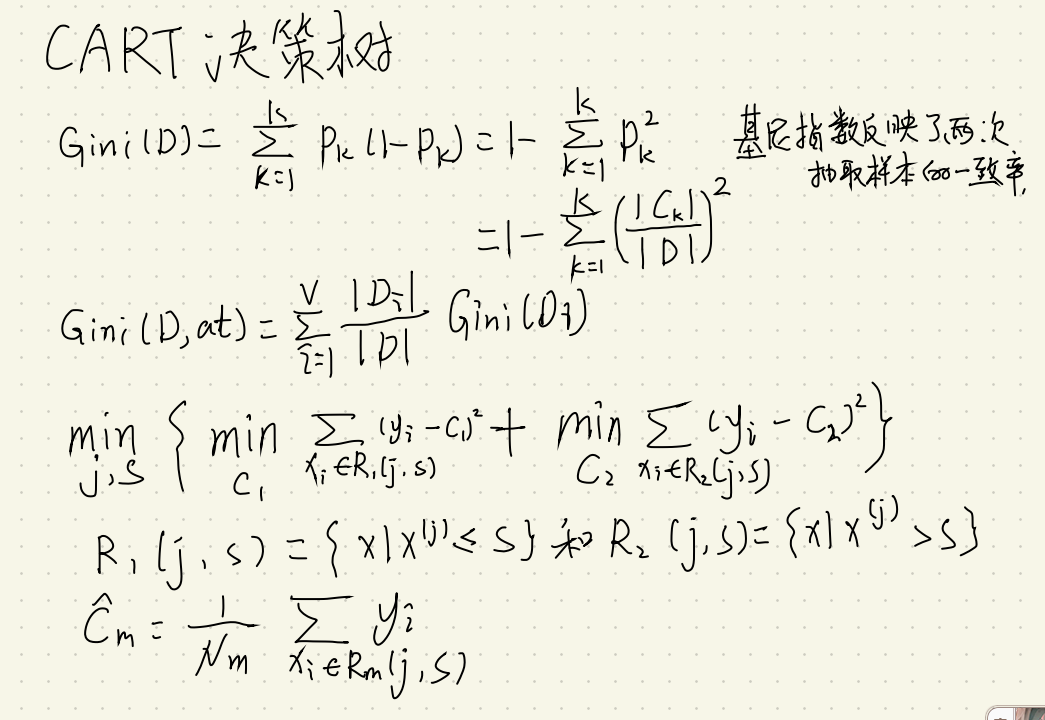 CART决策树
Gini(D)= \sum_{k=1}^{K} P_k(1-P_k)=1-\sum_{k=1}^{K} P_k^2
基尼指数反映了两次
抽取样本的一致率
=1-\sum_{k=1}^{K} \left(\frac{|C_k|}{|D|}\right)^2
Gini(D,at)=\sum_{i=1}^{V} \frac{|D_i|}{|D|} Gini(D_i)
\min_{j,s} \left\{ \min_{C_1} \sum_{x_i \in R_1(j,s)} (y_i-C_1)^2 + \min_{C_2} \sum_{x_i \in R_2(j,s)} (y_i-C_2)^2 \right\}
R_1(j,s)=\{x|x^{(j)} \le s\}和R_2(j,s)=\{x|x^{(j)}>s\}
\hat{C}_m=\frac{1}{N_m} \sum_{x_i \in R_m(j,s)} y_i